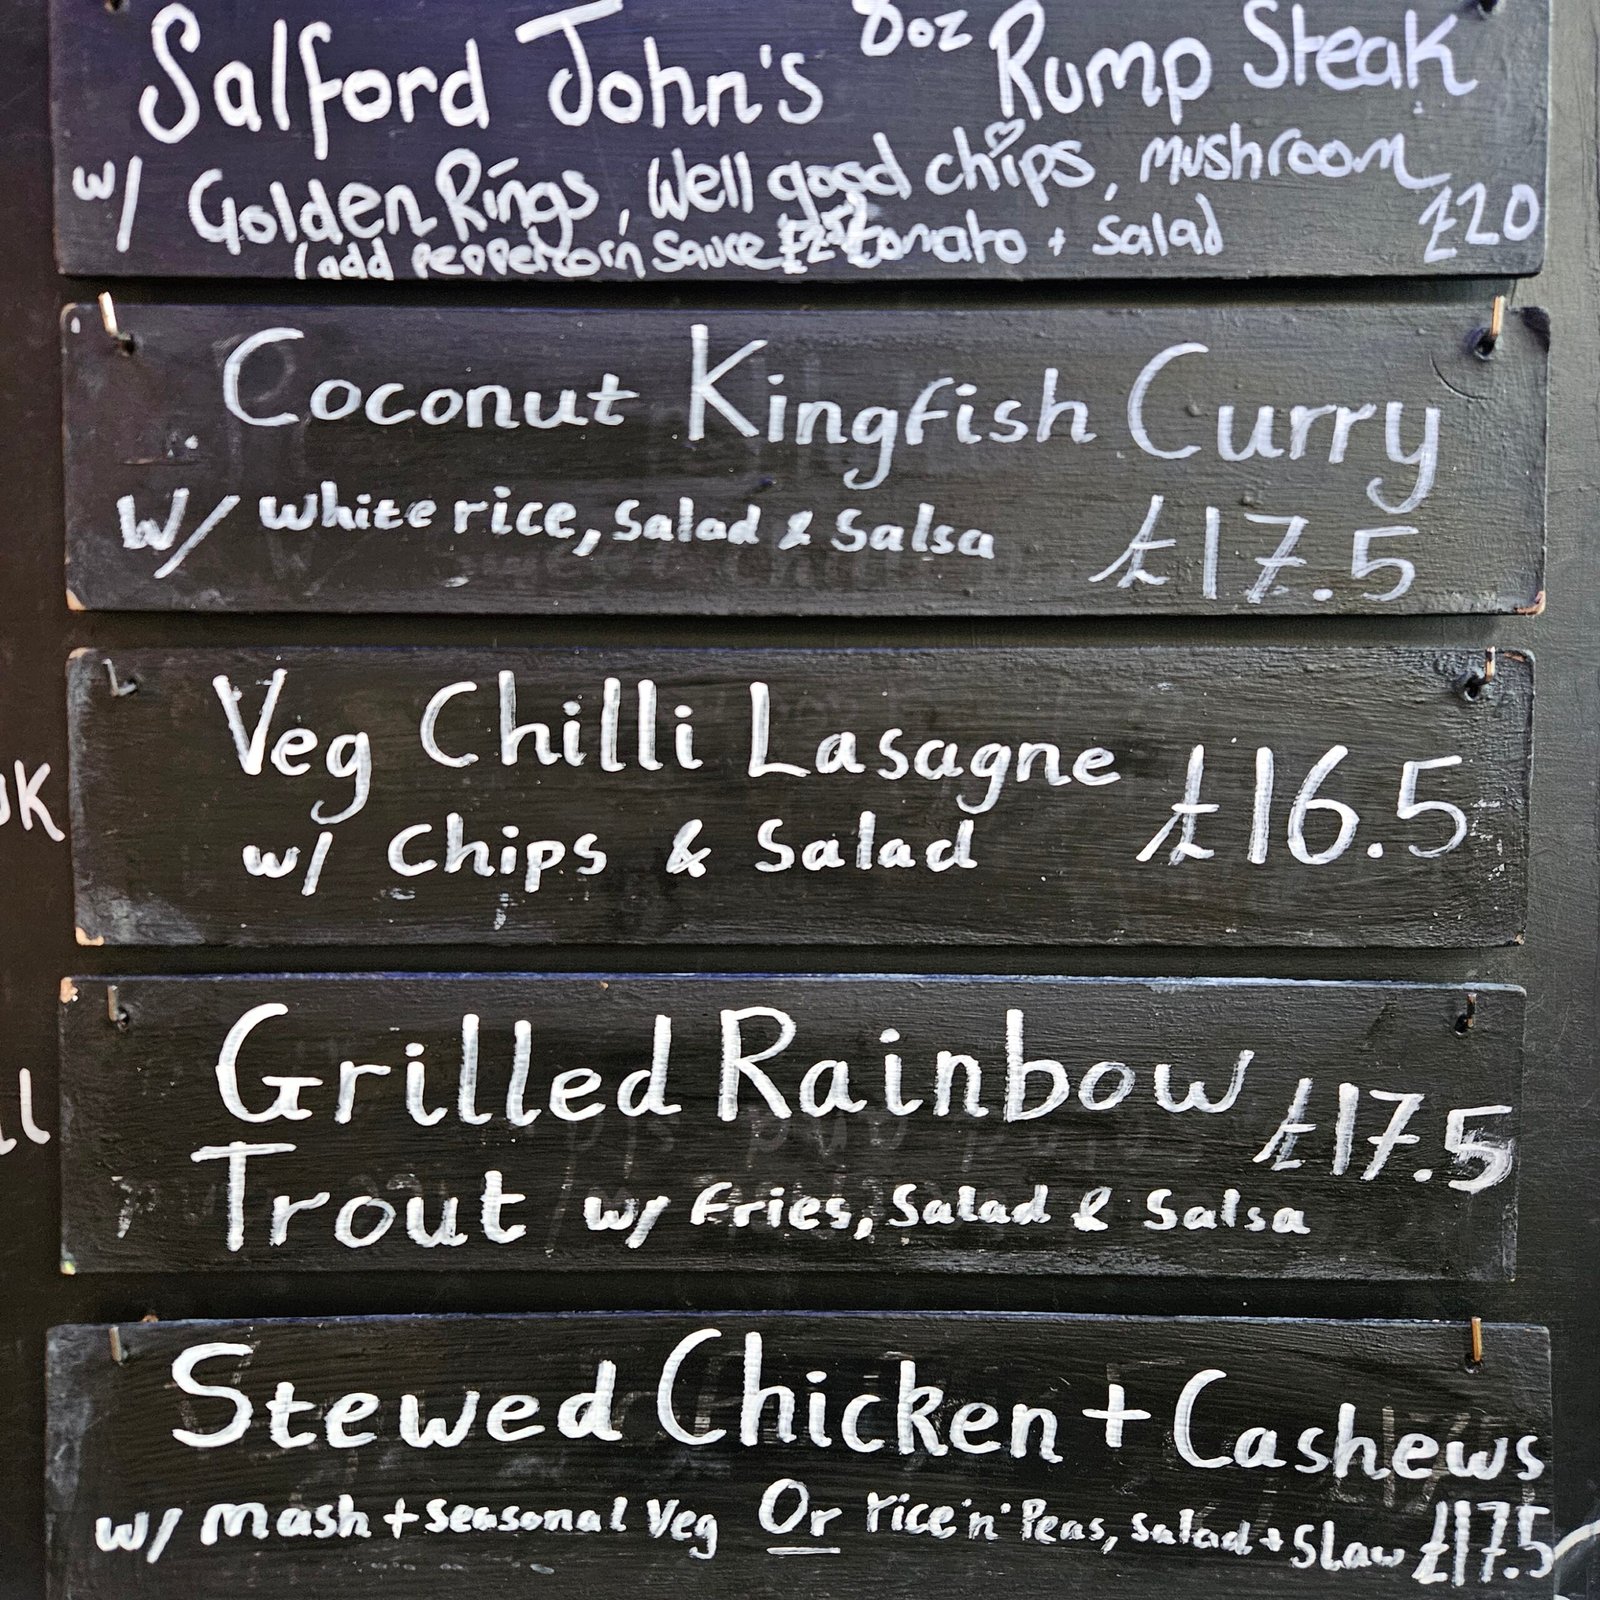 Salford John's 8oz Rump Steak
w/ Golden Rings, Well good chips, mushroom
(add peppercorn sauce tomato + salad £20
Coconut Kingfish Curry
W/ white rice, Salad & Salsa £17.5
Veg Chilli Lasagne £16.5
w/ Chips & Salad
Grilled Rainbow £17.5
Trout w/ Fries, Salad & Salsa
Stewed Chicken + Cashews
w/ Mash + Seasonal Veg Or rice 'n' Peas, Salad + Slaw £17.5